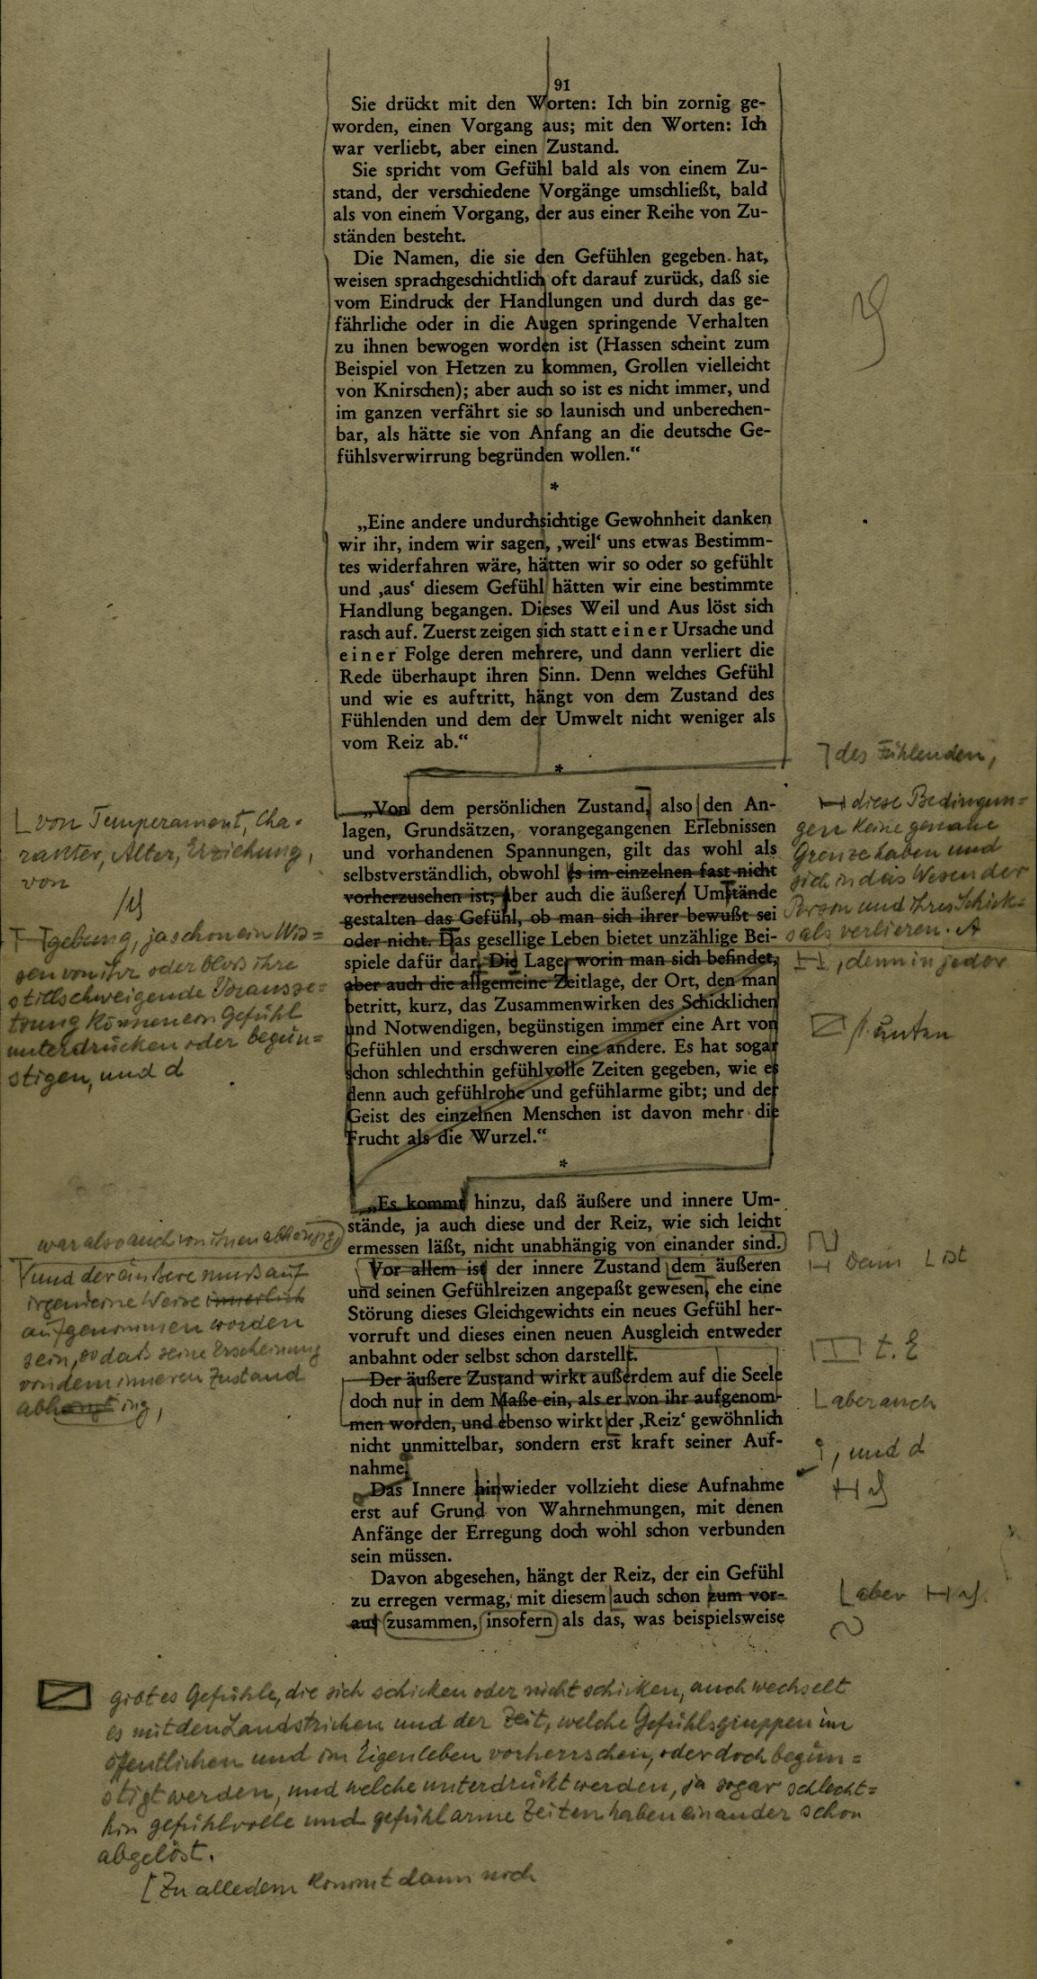 91
Sie drückt mit den Worten: Ich bin zornig ge-
worden, einen Vorgang aus; mit den Worten: Ich
war verliebt, aber einen Zustand.
Sie spricht vom Gefühl bald als von einem Zu-
stand, der verschiedene Vorgänge umschließt, bald
als von einem Vorgang, der aus einer Reihe von Zu-
ständen besteht.
Die Namen, die sie den Gefühlen gegeben hat,
weisen sprachgeschichtlich oft darauf zurück, daß sie
vom Eindruck der Handlungen und durch das ge-
fährliche oder in die Augen springende Verhalten
zu ihnen bewogen worden ist (Hassen scheint zum
Beispiel von Hetzen zu kommen, Grollen vielleicht
von Knirschen); aber auch so ist es nicht immer, und
im ganzen verfährt sie so launisch und unberechen-
bar, als hätte sie von Anfang an die deutsche Ge-
fühlsverwirrung begründen wollen.“
*
„Eine andere undurchsichtige Gewohnheit danken
wir ihr, indem wir sagen, ‚weil‘ uns etwas Bestimm-
tes widerfahren wäre, hätten wir so oder so gefühlt
und ‚aus‘ diesem Gefühl hätten wir eine bestimmte
Handlung begangen. Dieses Weil und Aus löst sich
rasch auf. Zuerst zeigen sich statt einer Ursache und
einer Folge deren mehrere, und dann verliert die
Rede überhaupt ihren Sinn. Denn welches Gefühl
und wie es auftritt, hängt von dem Zustand des
Fühlenden und dem der Umwelt nicht weniger als
vom Reiz ab.“
*
„Von dem persönlichen Zustand, also den An-
lagen, Grundsätzen, vorangegangenen Erlebnissen
und vorhandenen Spannungen, gilt das wohl als
selbstverständlich, obwohl es im einzelnen fast nicht
vorherzusehen ist; aber auch die äußeren Umstände
gestalten das Gefühl, ob man sich ihrer bewußt sei
oder nicht. Das gesellige Leben bietet unzählige Bei-
spiele dafür dar. Die Lage, worin man sich befindet,
aber auch die allgemeine Zeitlage, der Ort, den man
betritt, kurz, das Zusammenwirken des Schicklichen
und Notwendigen, begünstigen immer eine Art von
Gefühlen und erschweren eine andere. Es hat sogar
schon schlechthin gefühlvolle Zeiten gegeben, wie es
denn auch gefühlrohe und gefühlarme gibt; und der
Geist des einzelnen Menschen ist davon mehr die
Frucht als die Wurzel.“
*
„Es kommt hinzu, daß äußere und innere Um-
stände, ja auch diese und der Reiz, wie sich leicht
ermessen läßt, nicht unabhängig von einander sind.
Vor allem ist der innere Zustand dem äußeren
und seinen Gefühlreizen angepaßt gewesen, ehe eine
Störung dieses Gleichgewichts ein neues Gefühl her-
vorruft und dieses einen neuen Ausgleich entweder
anbahnt oder selbst schon darstellt.
Der äußere Zustand wirkt außerdem auf die Seele
doch nur in dem Maße ein, als er von ihr aufgenom-
men worden, und ebenso wirkt der ‚Reiz‘ gewöhnlich
nicht unmittelbar, sondern erst kraft seiner Auf-
nahme.
Das Innere hinwieder vollzieht diese Aufnahme
erst auf Grund von Wahrnehmungen, mit denen
Anfänge der Erregung doch wohl schon verbunden
sein müssen.
Davon abgesehen, hängt der Reiz, der ein Gefühl
zu erregen vermag, mit diesem auch schon zum vor-
aus zusammen, insofern als das, was beispielsweise
von Temperament, Cha-
rakter, Alter, Erziehung,
von
gebung, ja schon ein Wis=
sen von ihr oder bloß ihre
stillschweigende Vorausse=
tzung können ein Gefühl
unterdrücken oder begün=
stigen, und d
war also auch von ihnen abhängig
und der äußere muß auf
irgendeine Weise innerlich
aufgenommen worden
sein, so daß seine Erscheinung
von dem inneren Zustand
abhängt ing,
des Fühlenden,
diese Bedingun=
gen keine genaue
Grenze haben und
sich in das Wesen der
Person und ihres Schick=
sals verlieren. A
, denn in jeder
unten
Dann ist
t. E
aber auch
, und d
aber
gibt es Gefühle, die sich schicken oder nicht schicken, auch wechselt
es mit den Landstrichen und der Zeit, welche Gefühlsgruppen im
öffentlichen und im Eigenleben vorherrschen, oder doch begün=
stigt werden, und welche unterdrückt werden, ja sogar schlecht=
hin gefühlvolle und gefühlarme Zeiten haben einander schon
abgelöst.
[Zu alledem kommt dann noch